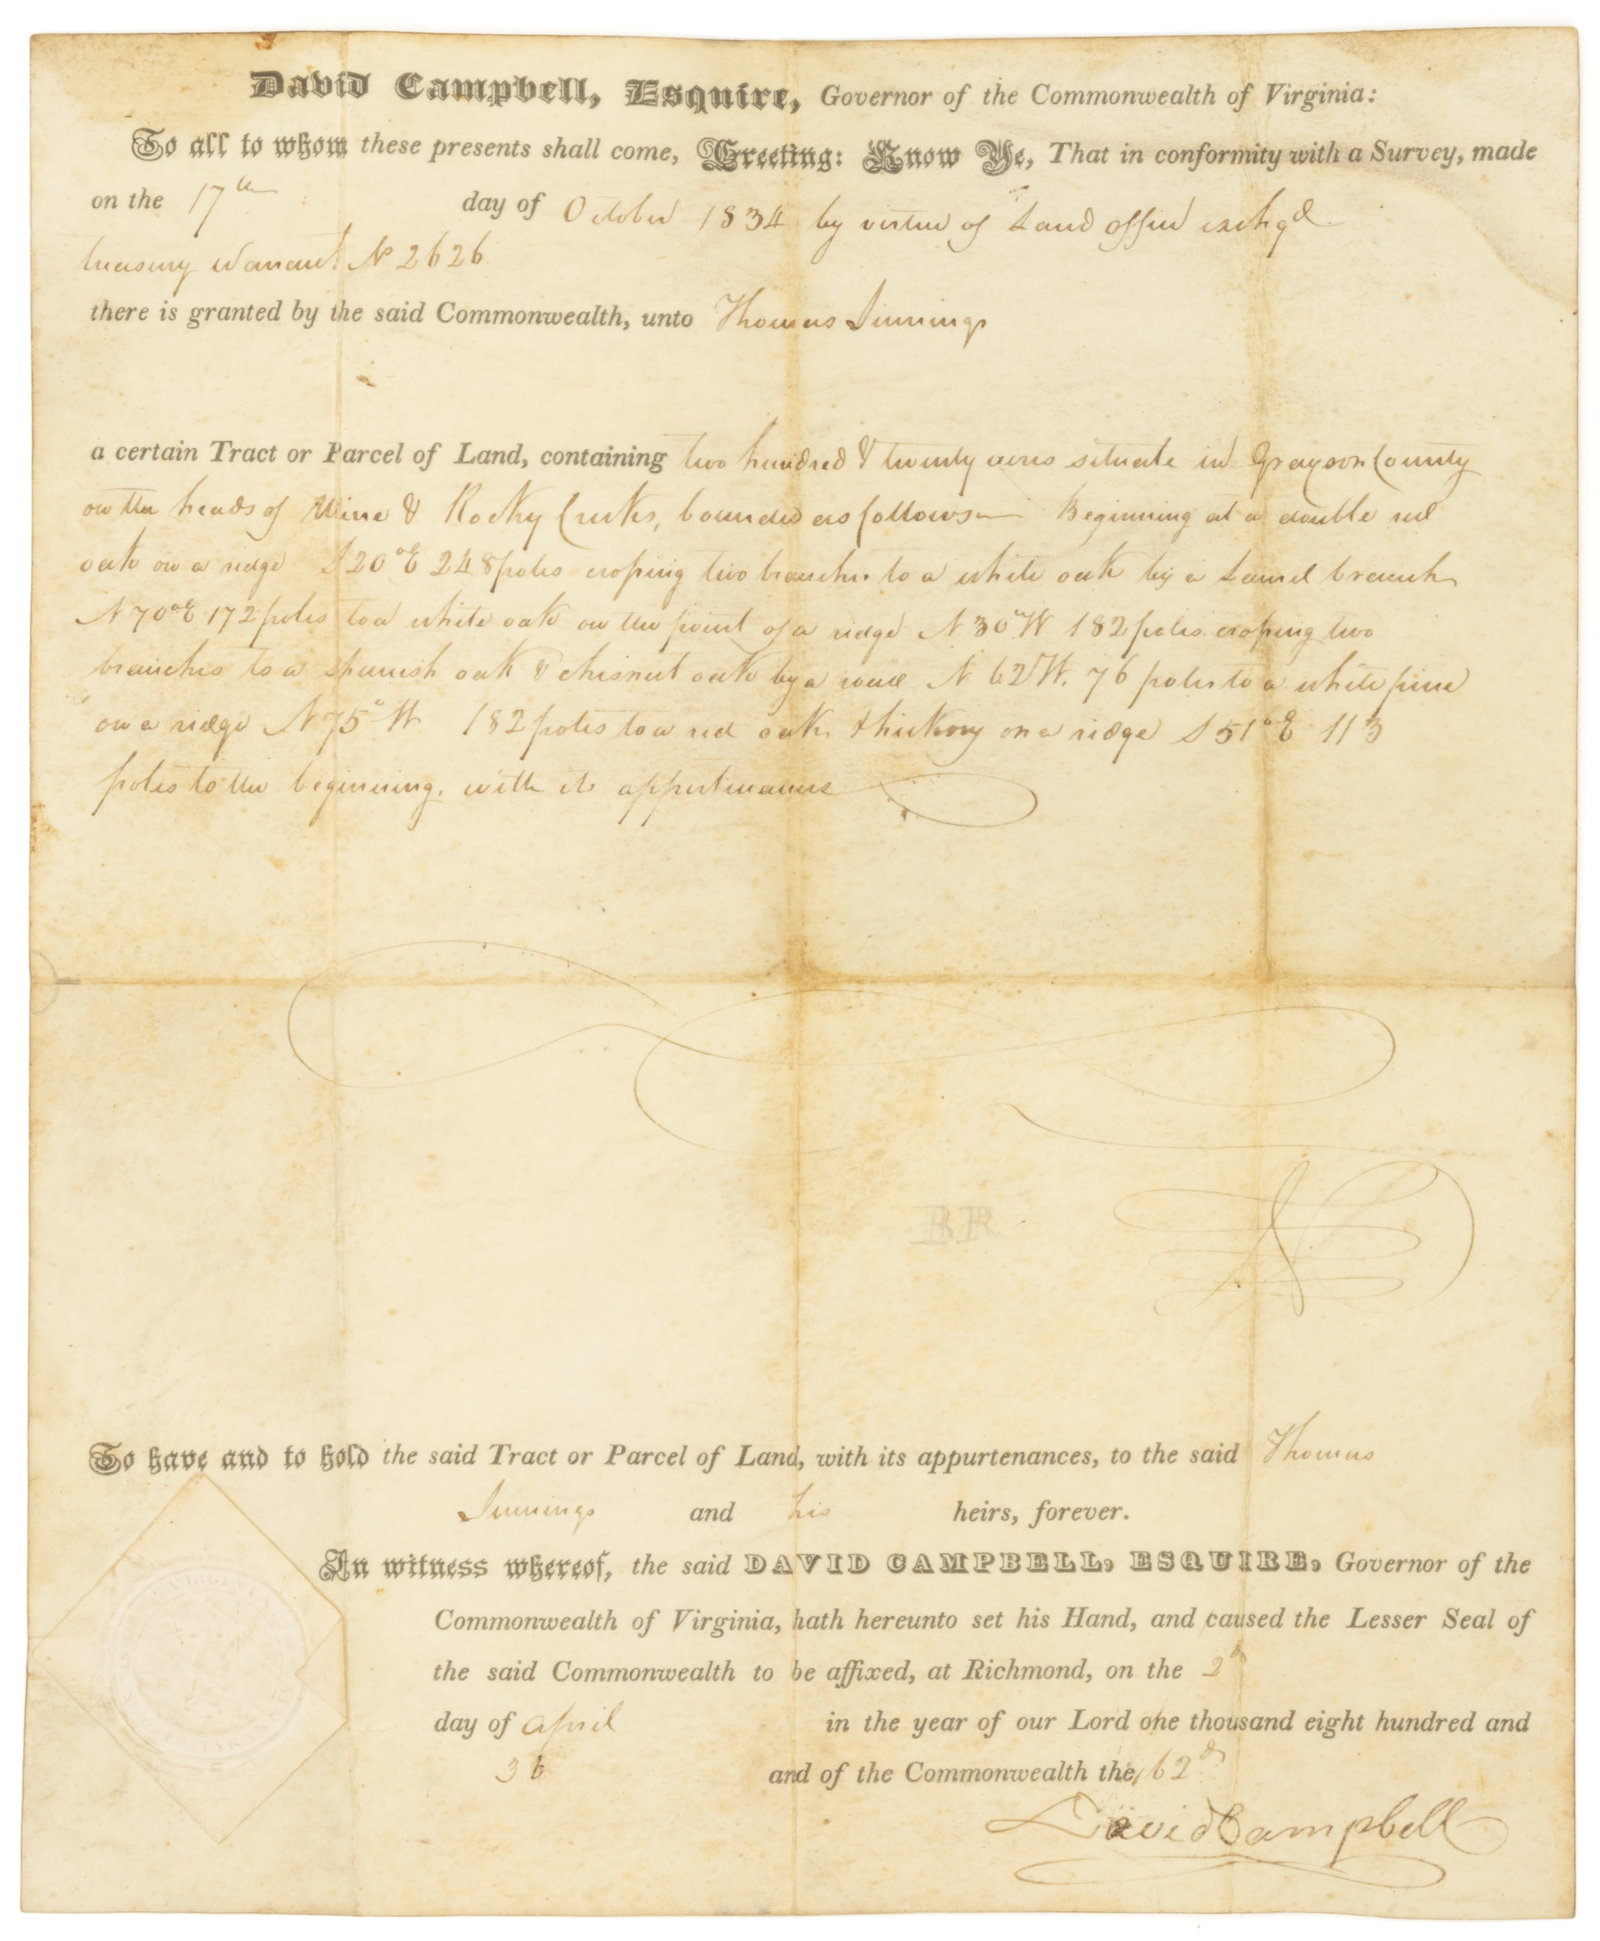 David Campbell, Esquire, Governor of the Commonwealth of Virginia:
To all to whom these presents shall come, Greeting: Know Ye, That in conformity with a Survey, made
on the 17th day of October 1834 by virtue of Land office exchgd
treasury Warrant No 2626
there is granted by the said Commonwealth, unto Thomas Jennings
a certain Tract or Parcel of Land, containing two hundred & twenty acres situate in Grayson County
on the heads of Mine & Rocky Creeks, bounded as follows Beginning at a double red
oak on a ridge S20°E 248 poles croping two branches to a white oak by a Laurel branch
N70°E 172 poles to a white oak on the point of a ridge N30°W 182 poles croping two
branches to a Spanish oak & chesnut oak by a road N62W. 76 poles to a white pine
on a ridge N75°W 182 poles to a red oak & hickory on a ridge S51°E 113
poles to the beginning. with its appurtenances
To have and to hold the said Tract or Parcel of Land, with its appurtenances, to the said Thomas
Jennings and his heirs, forever.
In witness whereof, the said DAVID CAMPBELL, ESQUIRE, Governor of the
Commonwealth of Virginia, hath hereunto set his Hand, and caused the Lesser Seal of
the said Commonwealth to be affixed, at Richmond, on the 2d
day of April in the year of our Lord one thousand eight hundred and
and of the Commonwealth the 62d
David Campbell